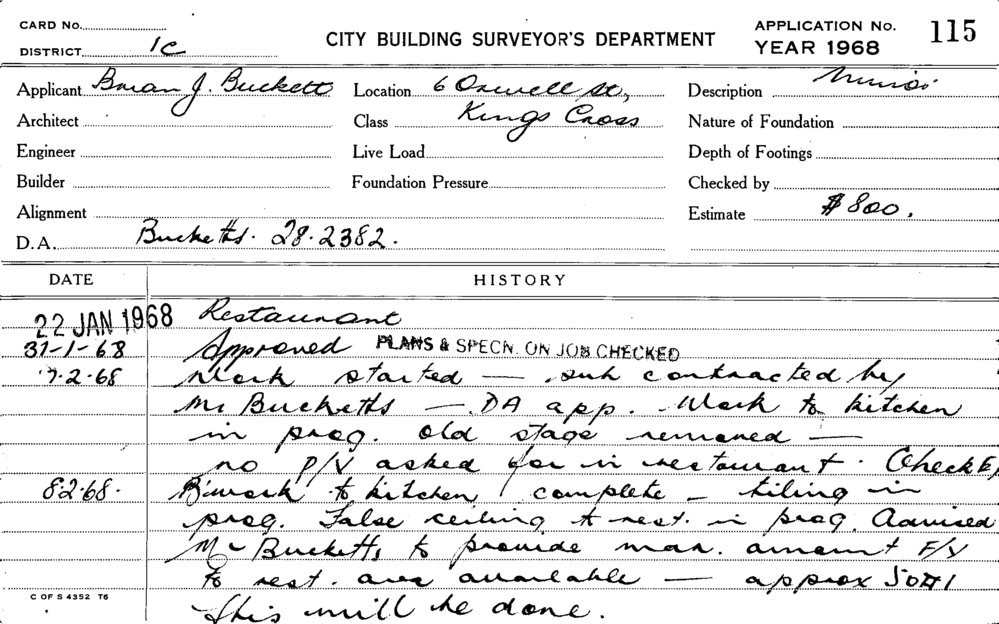 CARD No.
DISTRICT 1C
CITY BUILDING SURVEYOR'S DEPARTMENT
APPLICATION No. 115
YEAR 1968
Applicant Brian J. Buckett
Location 6 Orwell St,
Description
Architect
Class Kings Cross
Nature of Foundation
Engineer
Live Load
Depth of Footings
Builder
Foundation Pressure
Checked by
Alignment
Estimate $800.
D.A. Bucketts. 28.2382.
DATE HISTORY
22 JAN 1968 Restaurant
31-1-68 Approved PLANS & SPECN. ON JOB CHECKED
7.2.68 Work started — sub contracted by
Mr Bucketts — DA app. Work to kitchen
in prog. Old stage removed —
no P/V asked for in restaurant. Check
8.2.68. B'work to kitchen complete — tiling in
prog. False ceiling to rest. in prog. Advised
Mr Bucketts to provide max. amount F/V
to rest. area available — approx
This will be done.
C OF S 4352 T6